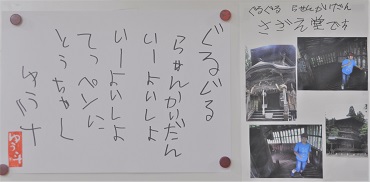 ぐるぐる
らせんかいだん
いーよいしょ
いーよいしょ
てっペンに
とうちゃく
ぐるぐる らせんかいだん
さざえ堂です